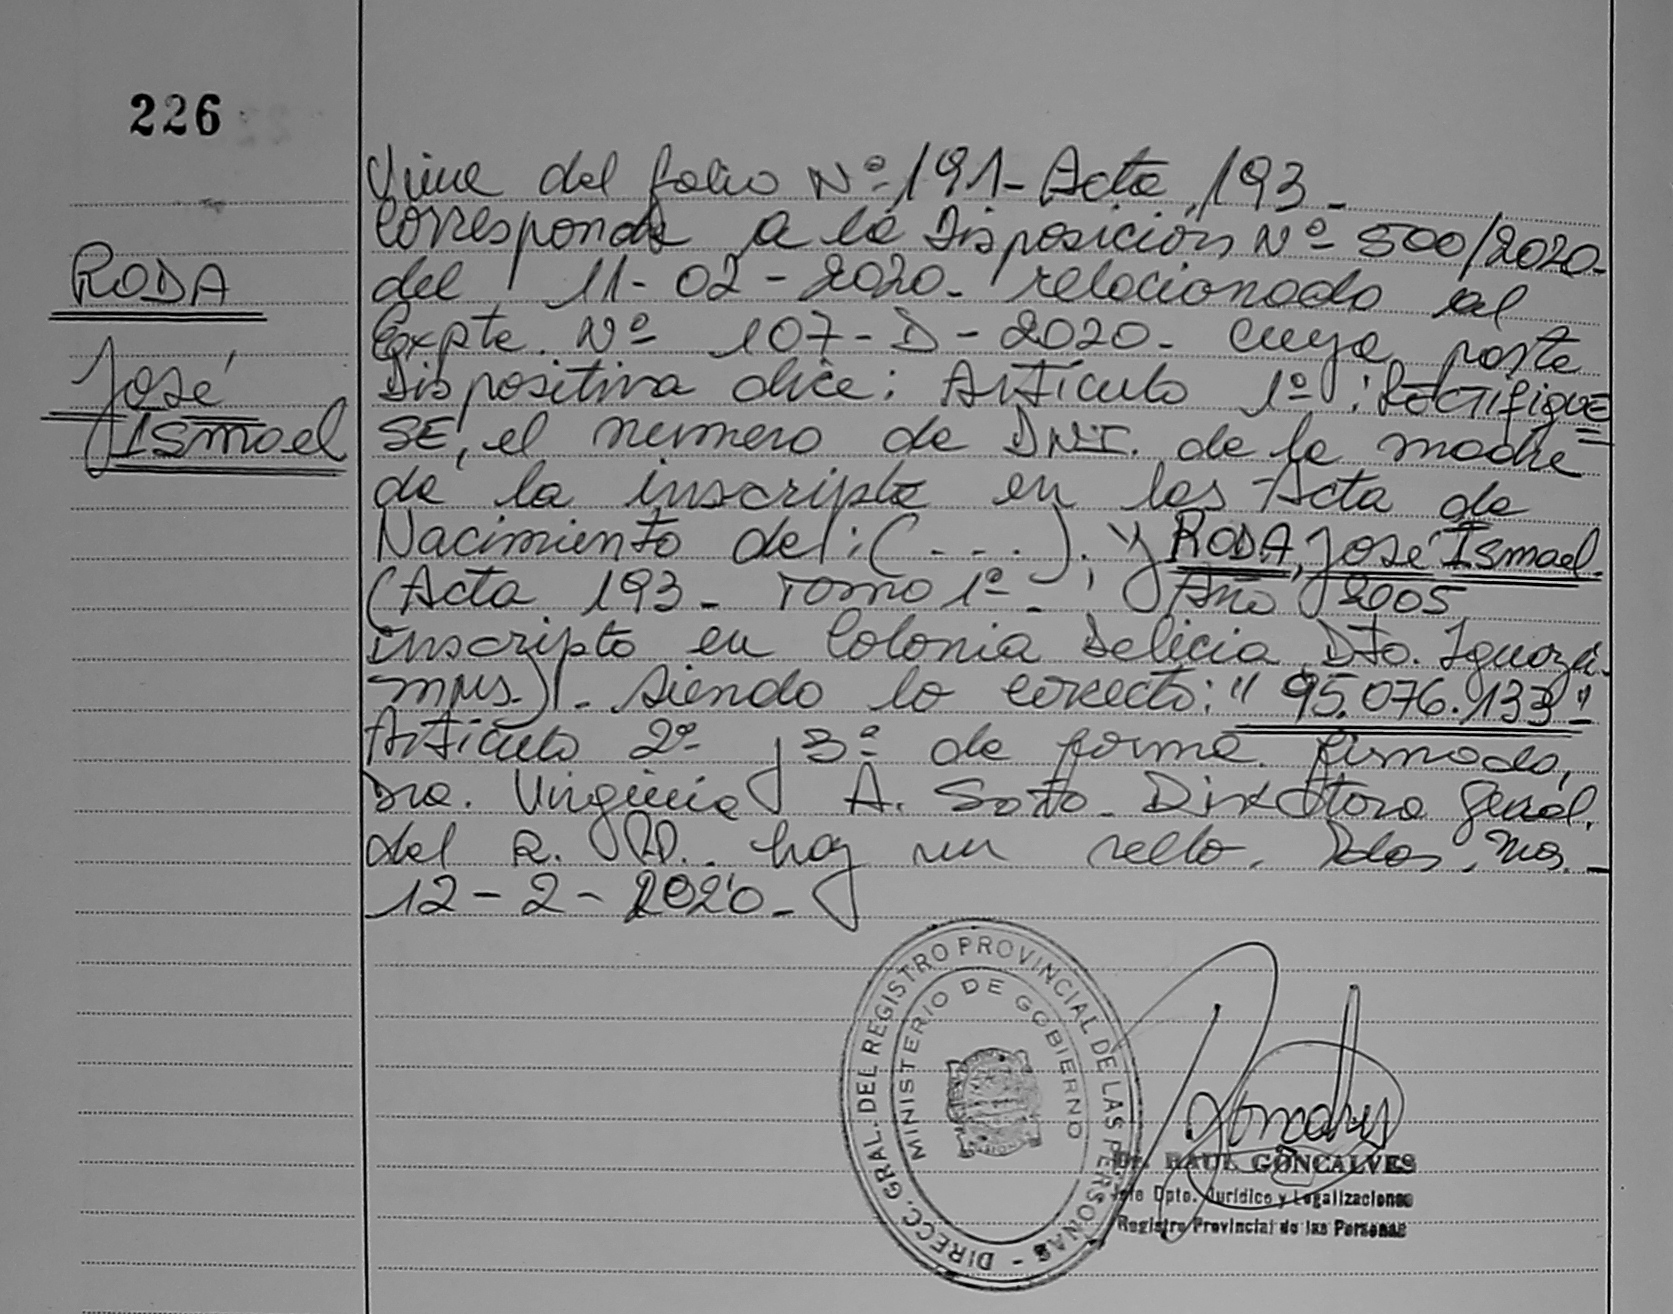 226
Viene del folio Nº 191- Acta 193-
Corresponde a la Disposición Nº 500/2020-
RODA
del 11-02-2020- relacionado al
Expte. Nº 107-D-2020- cuya parte
José
Dispositiva dice: Artículo 1º: RECTIFIQUE
Ismael
SE, el numero de DNI. de la madre
de la inscripta en las Acta de
Nacimiento de: (...); y RODA, José Ismael.
(Acta 193- Tomo 1º-; Año 2005
Inscripto en Colonia Delicia Dto. Iguazú-
Mnes.)- siendo lo correcto: "95.076.133"
Artículo 2º y 3º de forma. firmado,
Dra. Virginia A. Soto- Directora Genal.
del R. P.P. hay un sello. Pdas, Mns.-
12-2-2020-
DIRECC. GRAL. DEL REGISTRO PROVINCIAL DE LAS PERSONAS -
MINISTERIO DE GOBIERNO
Goncalves
Dr. RAUL GONCALVES
Jefe Dpto. Jurídico y Legalizaciones
Registro Provincial de las Personas